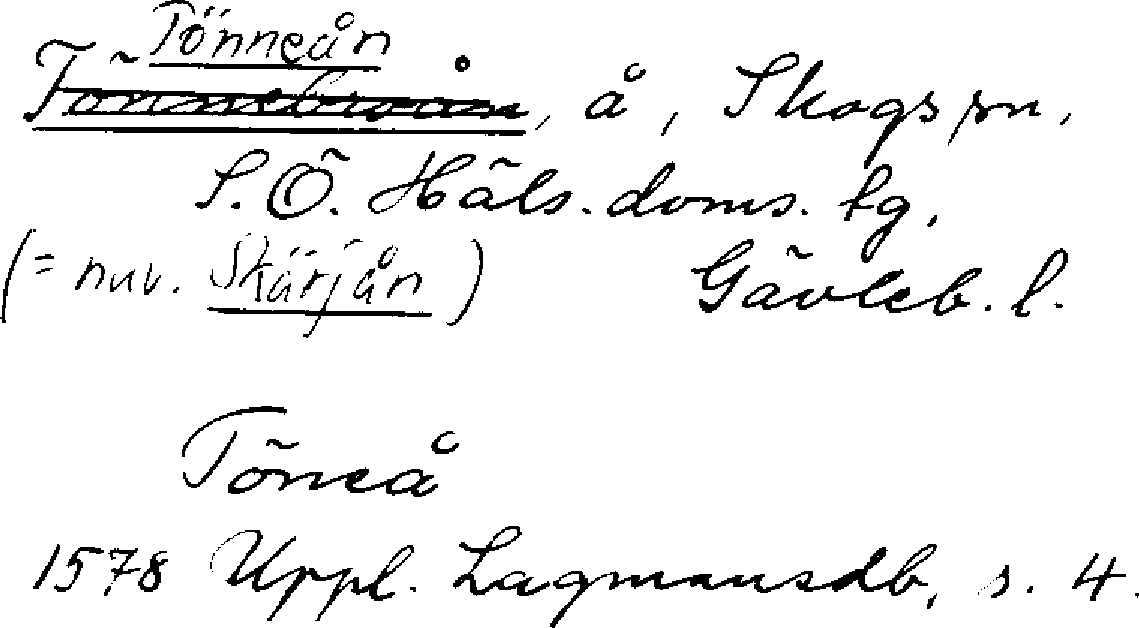 Tönneån
Tönnebroån, å, Skogs sn,
S.Ö. Häls. doms. tg,
(= nuv. Skärjån) Gävleb. l.
Töneå
1578 Uppl. Lagmansdb, s. 4.